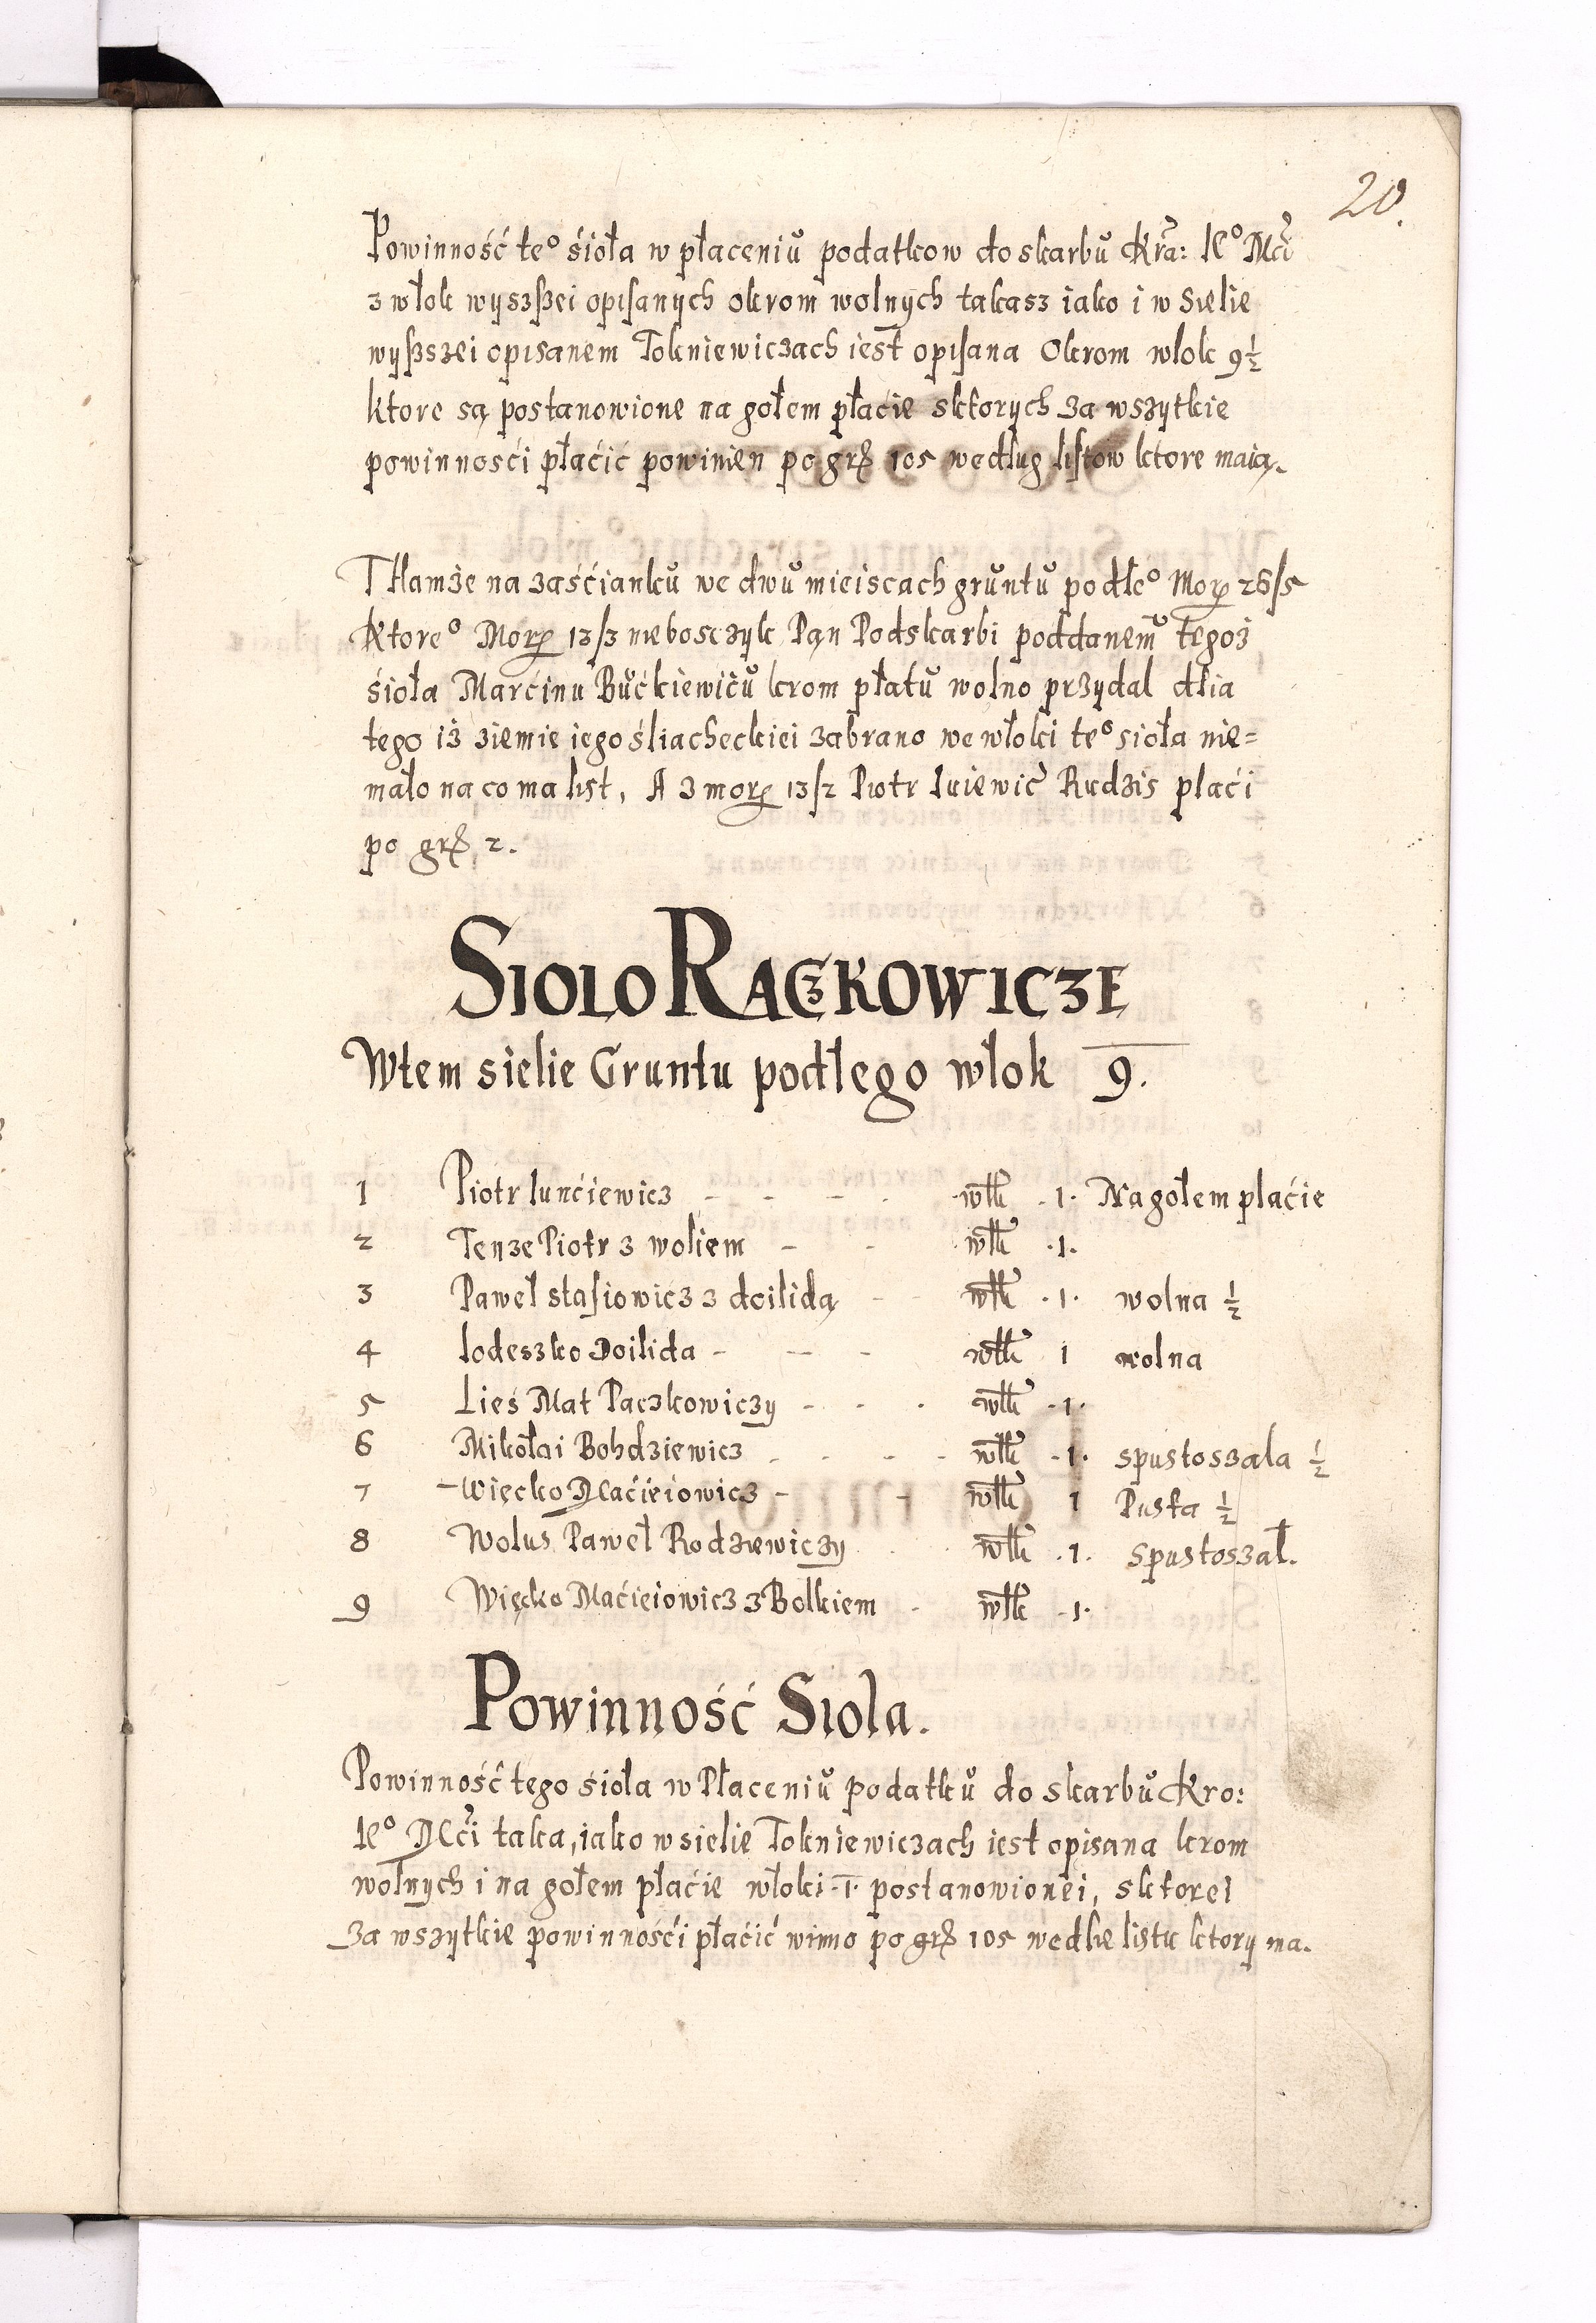 20.
Powinność te° śioła w płaceniu podatkow do skarbu Kra: Ie° Mći
z włok wyszßei opisanych okrom wolnych takasz iako i w Sielie
wyßszei opisanem Tokniewiczach iest opisana Okrom włok 9½
ktore są postanowione na gołem płacie sktorych za wszytkie
powinnosći płaćić powinien po grß 105 według listow ktore maią.
Tamże na zaśćianku we dwu mieiscach gruntu podłe° Morg 26/5
Ktore° Morg 13/3 nieboszczyk Pan Podskarbi poddanemu tegoż
śioła Marcinu Bućkiewiču krom płatu wolno przydal dlia
tego iż ziemie iego śliacheckiei zabrano we włoki te° sioła nie=
mało na co ma list, A z morg 13/2 Piotr Iuiewič Rudzis płaći
po grß 2.
SIOLO RACZKOWICZE
Wtem sielie Gruntu podłego włok 9.
1 Piotr Iunćiewicz - - - - włk .1. Na gołem płaćie
2 Tenze Piotr z woliem - - włk .1.
3 Paweł stasiowicz z doilidą - - włk .1. wolna ½
4 Iodeszko Doilida - - - włk 1 wolna
5 Lies Mat Paczkowiczy - - . włk .1.
6 Mikołai Bohdziewicz - - - - włk .1. spustoszala ½
7 Więcko Maćieiowicz - - włk 1 Pusta ½
8 Wolus Paweł Rodziewiczy . . włk .1. spustoszał.
9 Więcko Maćieiowicz z Bolkiem - włk .1.
Powinność Siola.
Powinność tego śioła w Płaceniu podatku do skarbu Kro:
Ie° Mći taka, iako w sielie Tokniewiczach iest opisana krom
wolnych i na gołem płaćie włoki .1. postanowionei, sktorei
za wszytkie powinnośći płaćić winno po grß 105 wedlie listu ktory ma.